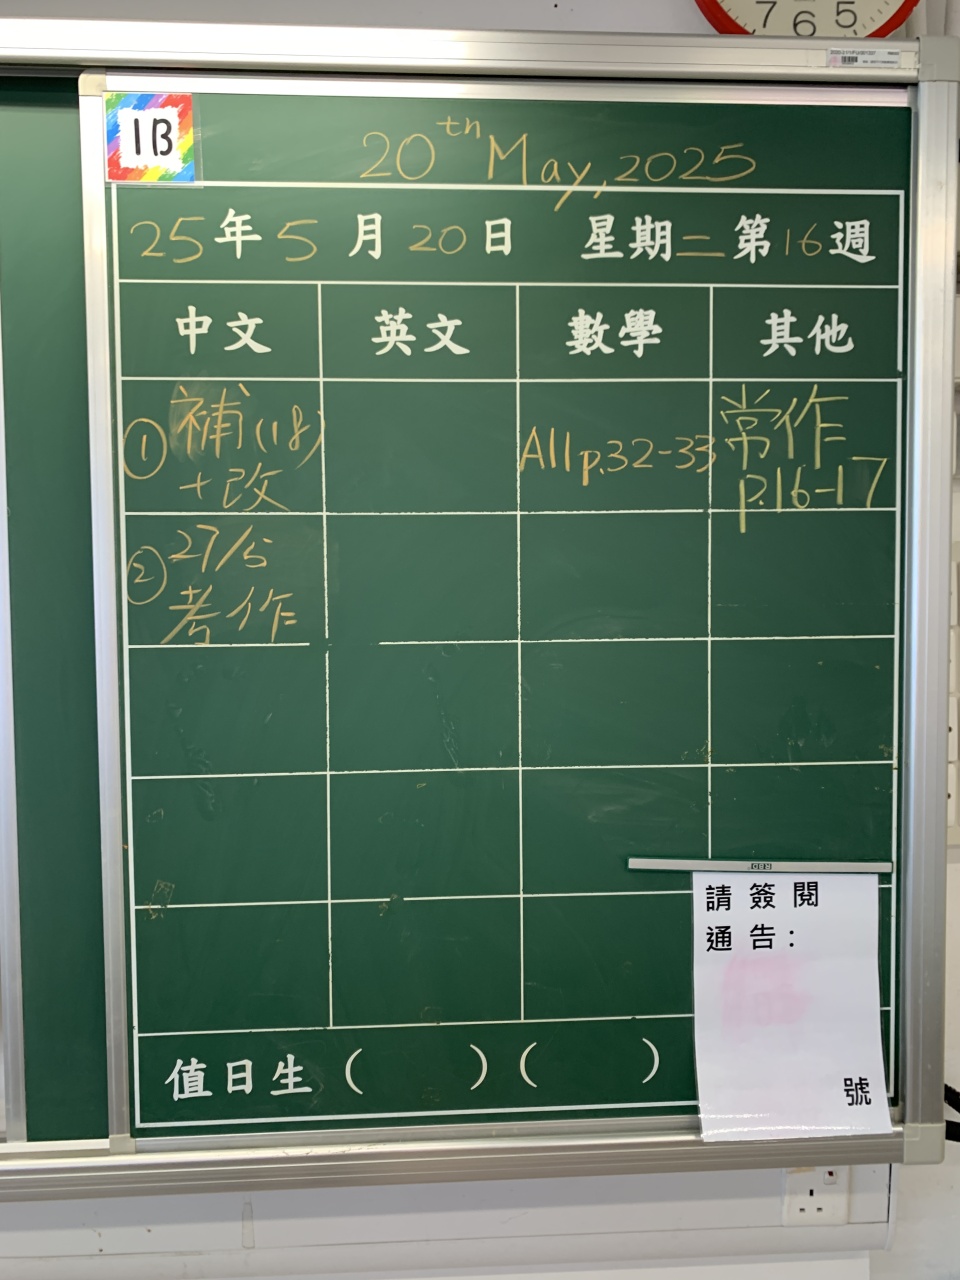 7 6 5
1B
20th May, 2025
25年5月20日 星期二第16週
中文 英文 數學 其他
① 補(18)
+改
All p.32-33
常作
p.16-17
② 27/5
考作
請簽閱
通告:
號
值日生( )( )